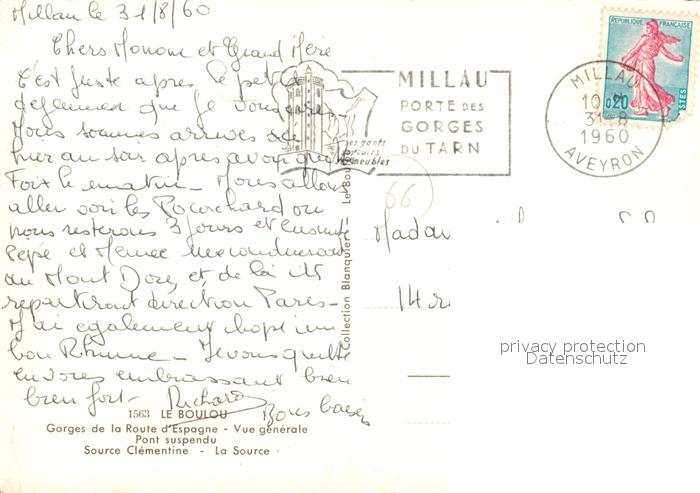 Millau le 31/8/60
Chers Monom et Grand Mère
C'est juste après le petit
déjeuner que je vous écris.
Nous sommes arrivés
hier au soir après avoir quitté
Foix le matin. Nous allons
aller voir les Rocorchard ou
nous resterons 3 jours et ensuite
Pépé et Mémée me conduiront
au Mont Dore, et de là ils
repartiront direction Paris -
J'ai également chopé un
bon Rhume - Je vous quitte
en vous embrassant bien
bien fort - Richard
Bons baisers
1563 LE BOULOU
Gorges de la Route d'Espagne - Vue générale
Pont suspendu
Source Clémentine - La Source
Collection Blanquier Le Boulou
MILLAU
PORTE DES
GORGES
DU TARN
ses gants
ses cuirs
meubles
MILLAU
10
31-8
1960
AVEYRON
REPUBLIQUE FRANÇAISE
0,20
POSTES
66
Madam
14 r
privacy protection
Datenschutz